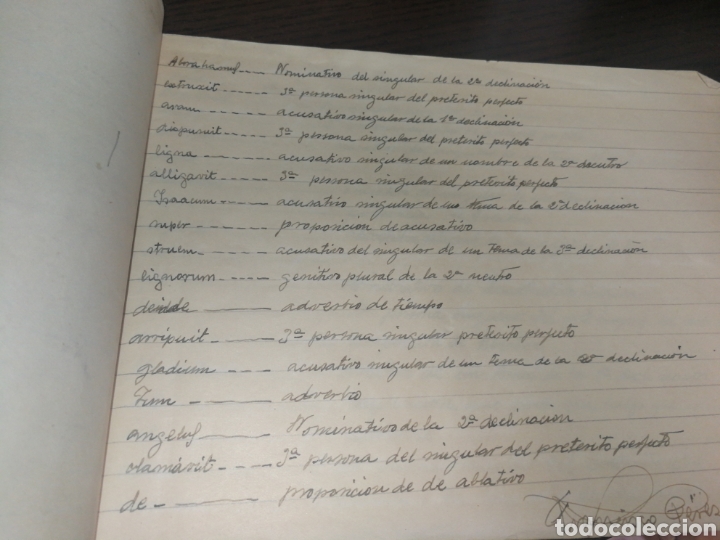 Abrahamus ---- Nominativo del singular de la 2ª declinación
extruxit ---- 3ª persona singular del preterito perfecto
aram ------- acusativo singular de la 1ª declinación
---- 3ª persona singular del preterito perfecto
ligna ------- acusativo singular de un nombre de la 2ª
alligavit ---- 3ª persona singular del preterito perfecto
Isaacum ---- acusativo singular de un tema de la 2ª declinacion
super ------ proposicion de acusativo
struem ---- acusativo del singular de un tema de la 3ª declinación
lignorum ---- genitivo plural de la 2ª neutro
deinde ---- adverbio de tiempo
arripuit ---- 3ª persona singular preterito perfecto
gladium ---- acusativo singular de un tema de la 2ª declinación
Tum ---- adverbio
angelus ---- Nominativo de la 2ª declinacion
clamávit ---- 3ª persona del singular del preterito perfecto
de ------- proposicion de de ablativo
Pérez
todocoleccion